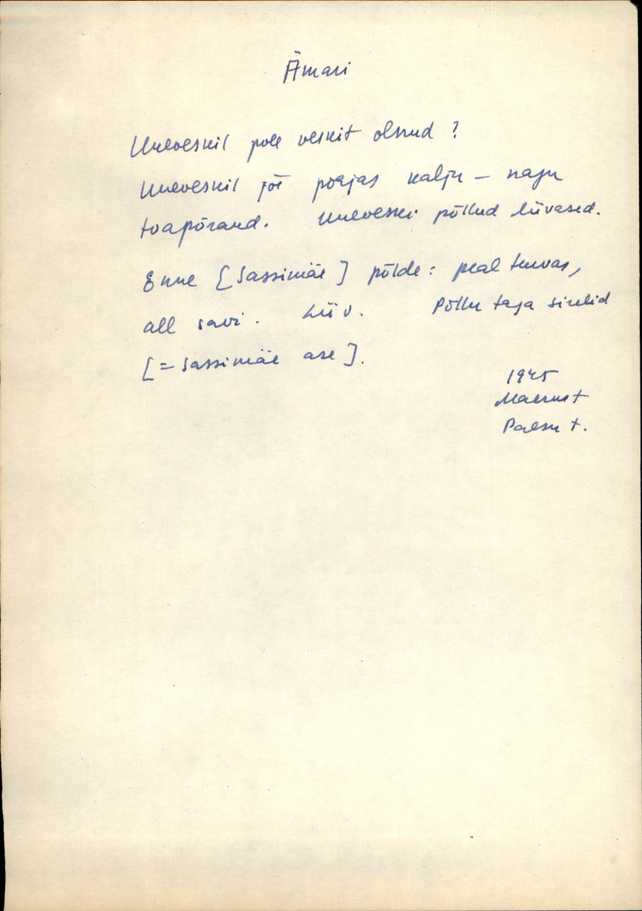 Ämari
Uueveskil pole veskit olnud?
Uueveskil jõe põhjas kalju – nagu
toapõrand. Uueveski põllud liivased.
Enne [Sassimäe] põlde: peal turvas,
all savi. Liiv. Põllu taga sirelid
[= Sassimäe ase].
1945